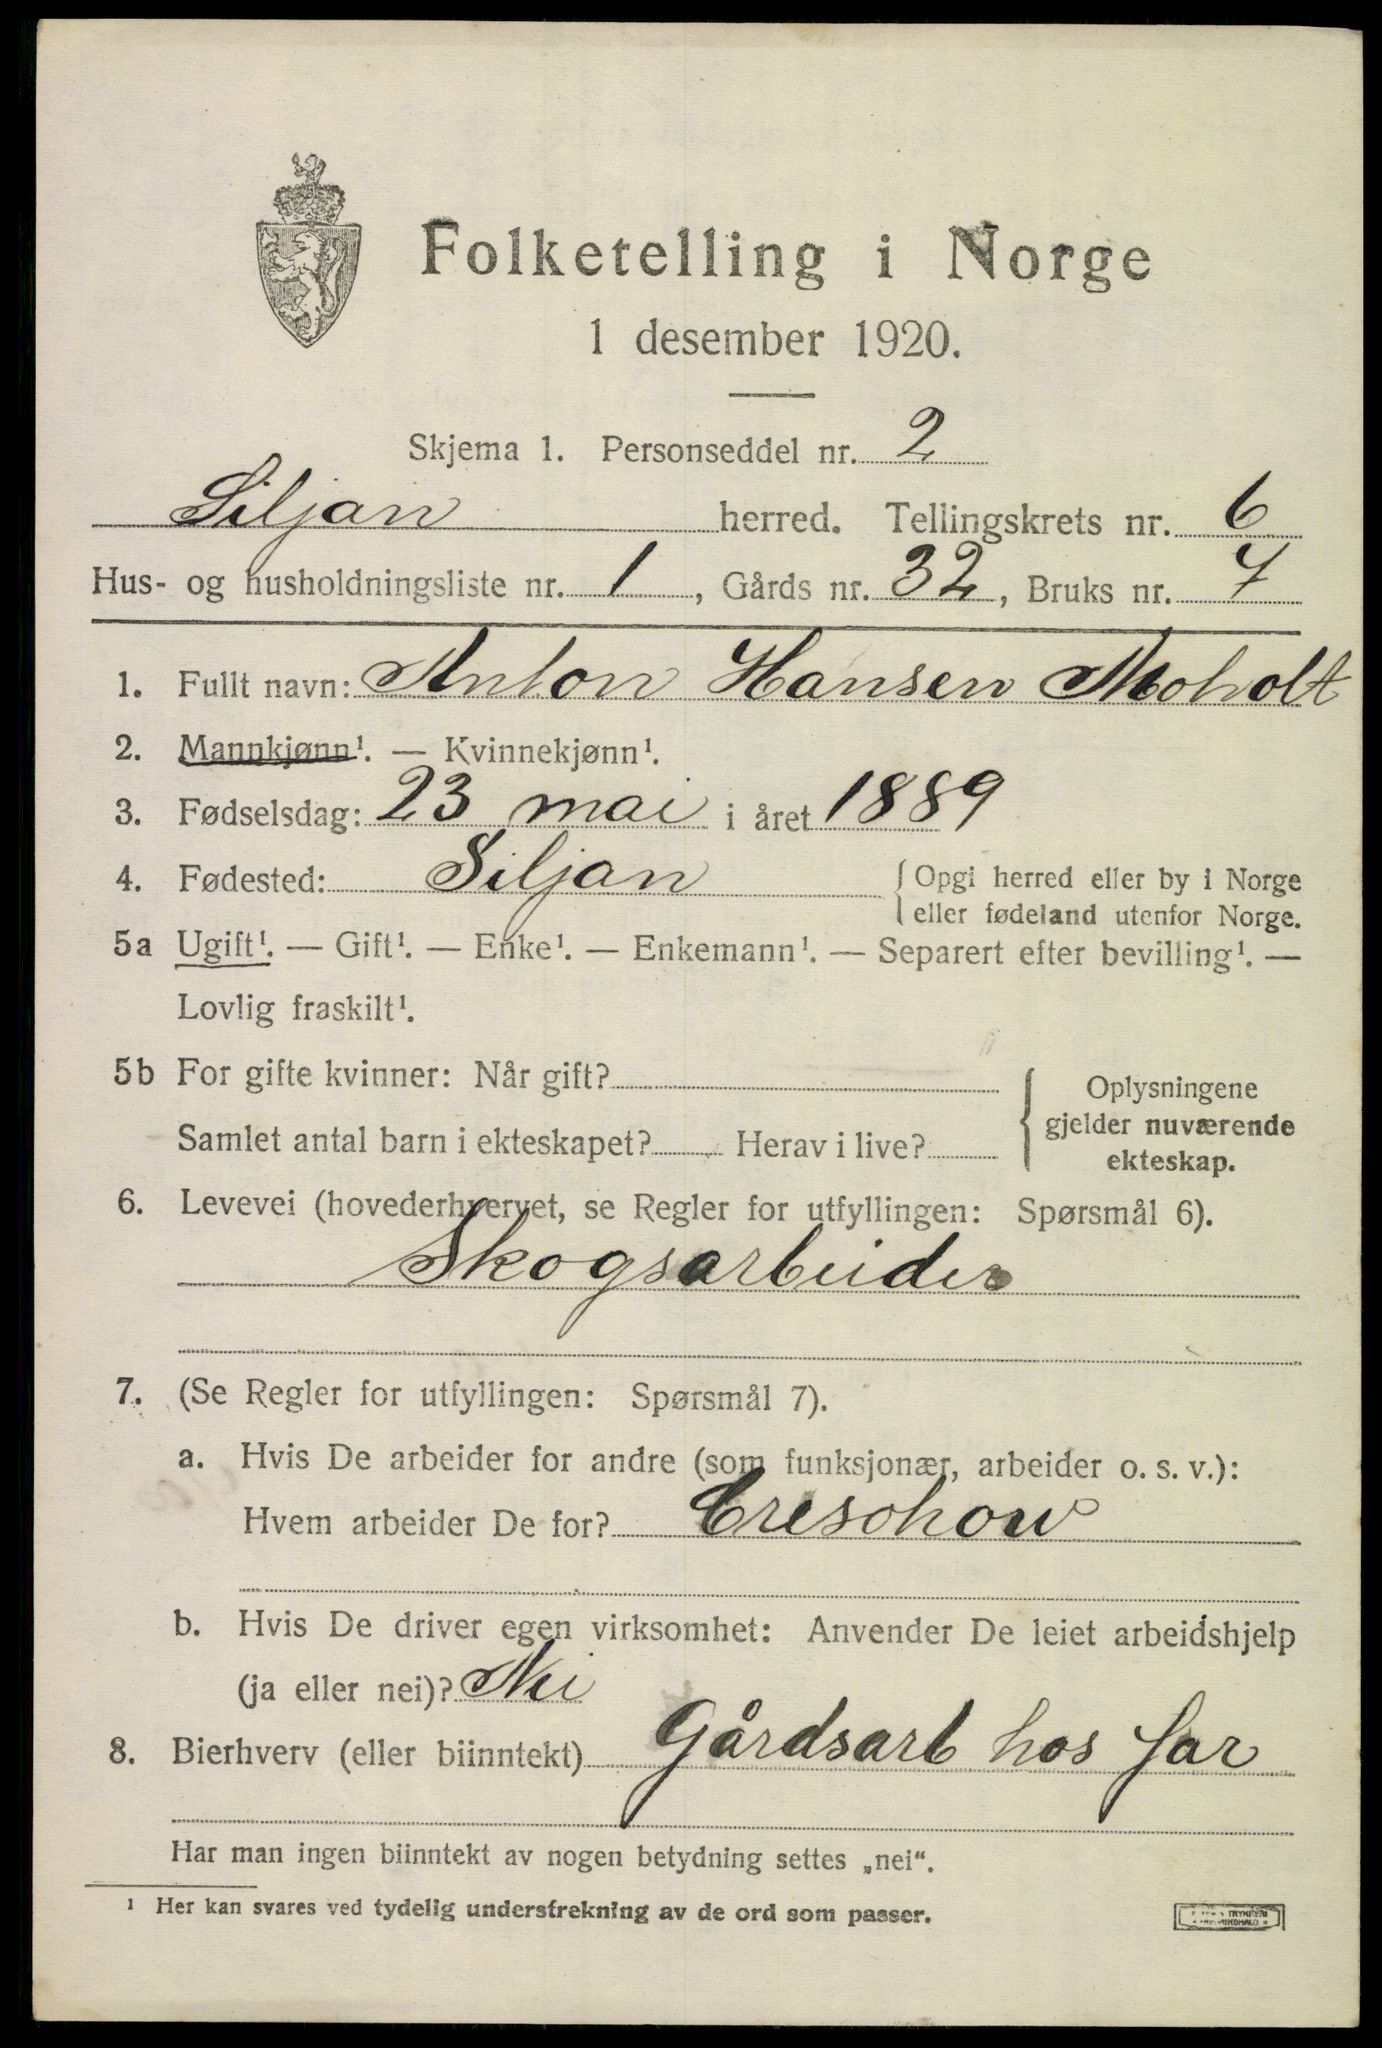 Folketelling i Norge
1 desember 1920.
Skjema 1. Personseddel nr. 2
Siljan herred. Tellingskrets nr. 6
Hus- og husholdningsliste nr. 1, Gårds nr. 32, Bruks nr. 7
1. Fullt navn: Anton Hansen Moholt
2. Mannkjønn¹. — Kvinnekjønn¹.
3. Fødselsdag: 23 mai i året 1889
4. Fødested: Siljan {Opgi herred eller by i Norge
eller fødeland utenfor Norge.
5a Ugift¹. — Gift¹. — Enke¹. — Enkemann¹. — Separert efter bevilling¹. —
Lovlig fraskilt¹.
5b For gifte kvinner: Når gift?
Samlet antal barn i ekteskapet? Herav i live?
{Oplysningene
gjelder nuværende
ekteskap.
6. Levevei (hovederhvervet, se Regler for utfyllingen: Spørsmål 6).
Skogsarbeider
7. (Se Regler for utfyllingen: Spørsmål 7).
a. Hvis De arbeider for andre (som funksjonær, arbeider o. s. v.):
Hvem arbeider De for? Creschow
b. Hvis De driver egen virksomhet: Anvender De leiet arbeidshjelp
(ja eller nei)? Nei
8. Bierhverv (eller biinntekt) Gårdsarb hos far
Har man ingen biinntekt av nogen betydning settes „nei“.
¹ Her kan svares ved tydelig understrekning av de ord som passer.